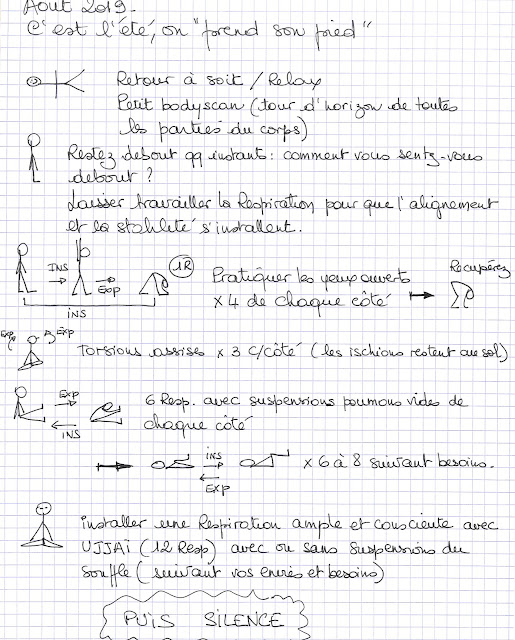 Août 2019.
C'est l'été, on "prend son pied"
Retour à soit / Relax
Petit bodyscan (tour d'horizon de toutes
les parties du corps)
Restez debout qq instants : comment vous sentez-vous
debout ?
Laisser travailler la Respiration pour que l'alignement
et la stabilité s'installent.
INS
EXP
INS
1R
Pratiquer les yeux ouverts
x 4 de chaque côté
Récupérez
Exp
Exp
Torsions assises x 3 C/côté (les ischions restent au sol)
Exp
INS
6 Resp. avec suspensions poumons vides de
chaque côté
ins
Exp
x 6 à 8 suivant besoins.
installer une Respiration ample et consciente avec
UJJAÏ (12 Resp) avec ou sans suspensions du
souffle (suivant vos envies et besoins)
PUIS SILENCE